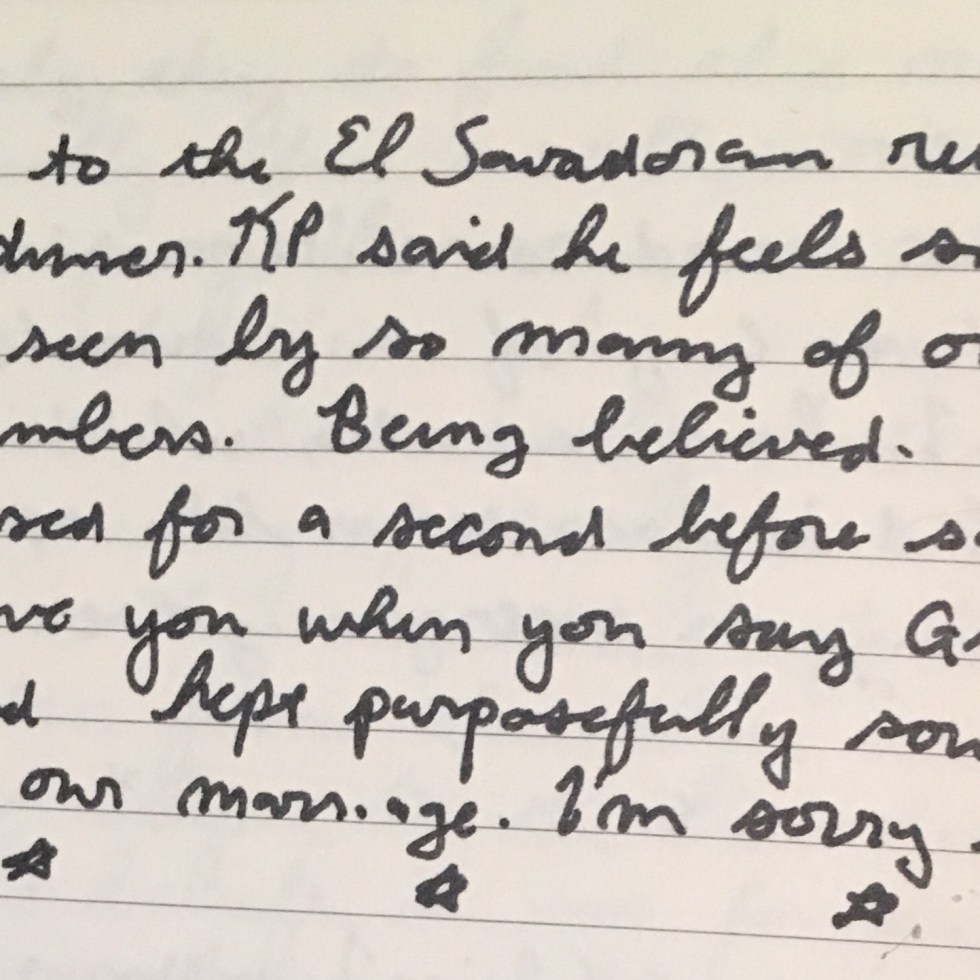 to the El Savadoran
dinner. KP said he feels
seen by so many of
mbers. Being believed.
sed for a second before
ve you when you say G
d kept purposefully
our marriage. I'm sorry